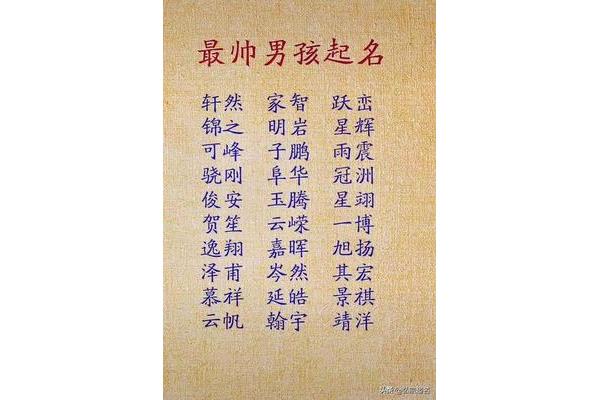 最帅男孩起名
轩然 家智 跃峦
锦之 明岩 星辉
可峰 子鹏 雨震
骁刚 阜华 冠洲
俊安 玉腾 星翊
贺笙 云嵘 一博
逸翔 嘉晖 旭扬
泽甫 岑然 其宏
慕祥 延皓 景祺
云帆 翰宇 靖洋